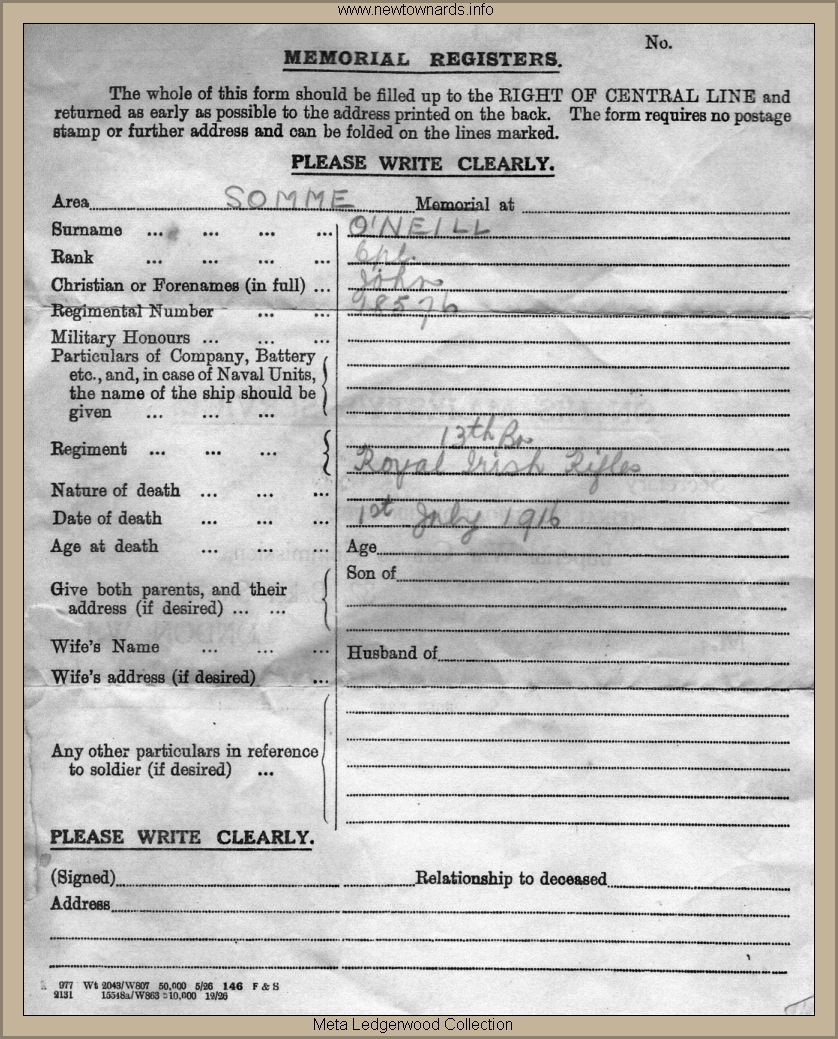 www.newtownards.info
No.
MEMORIAL REGISTERS.
The whole of this form should be filled up to the RIGHT OF CENTRAL LINE and
returned as early as possible to the address printed on the back. The form requires no postage
stamp or further address and can be folded on the lines marked.
PLEASE WRITE CLEARLY.
Area SOMME Memorial at
Surname ... ... ... ... O'NEILL
Rank ... ... ... ... Cpl.
Christian or Forenames (in full) ... John
Regimental Number ... ... 18576
Military Honours ... ... ...
Particulars of Company, Battery
etc., and, in case of Naval Units,
the name of the ship should be
given ... ... ...
13th Bn
Regiment ... ... ...
Royal Irish Rifles
Nature of death ... ... ...
Date of death ... ... ... 1st July 1916
Age at death ... ... ... Age
Son of
Give both parents, and their
address (if desired) ... ...
Wife's Name ... ... ... Husband of
Wife's address (if desired) ...
Any other particulars in reference
to soldier (if desired) ...
PLEASE WRITE CLEARLY.
(Signed) Relationship to deceased
Address
977 Wt 2043/W807 50,000 5/26 146 F & S
2131 15548a/W863 10,000 12/26
Meta Ledgerwood Collection